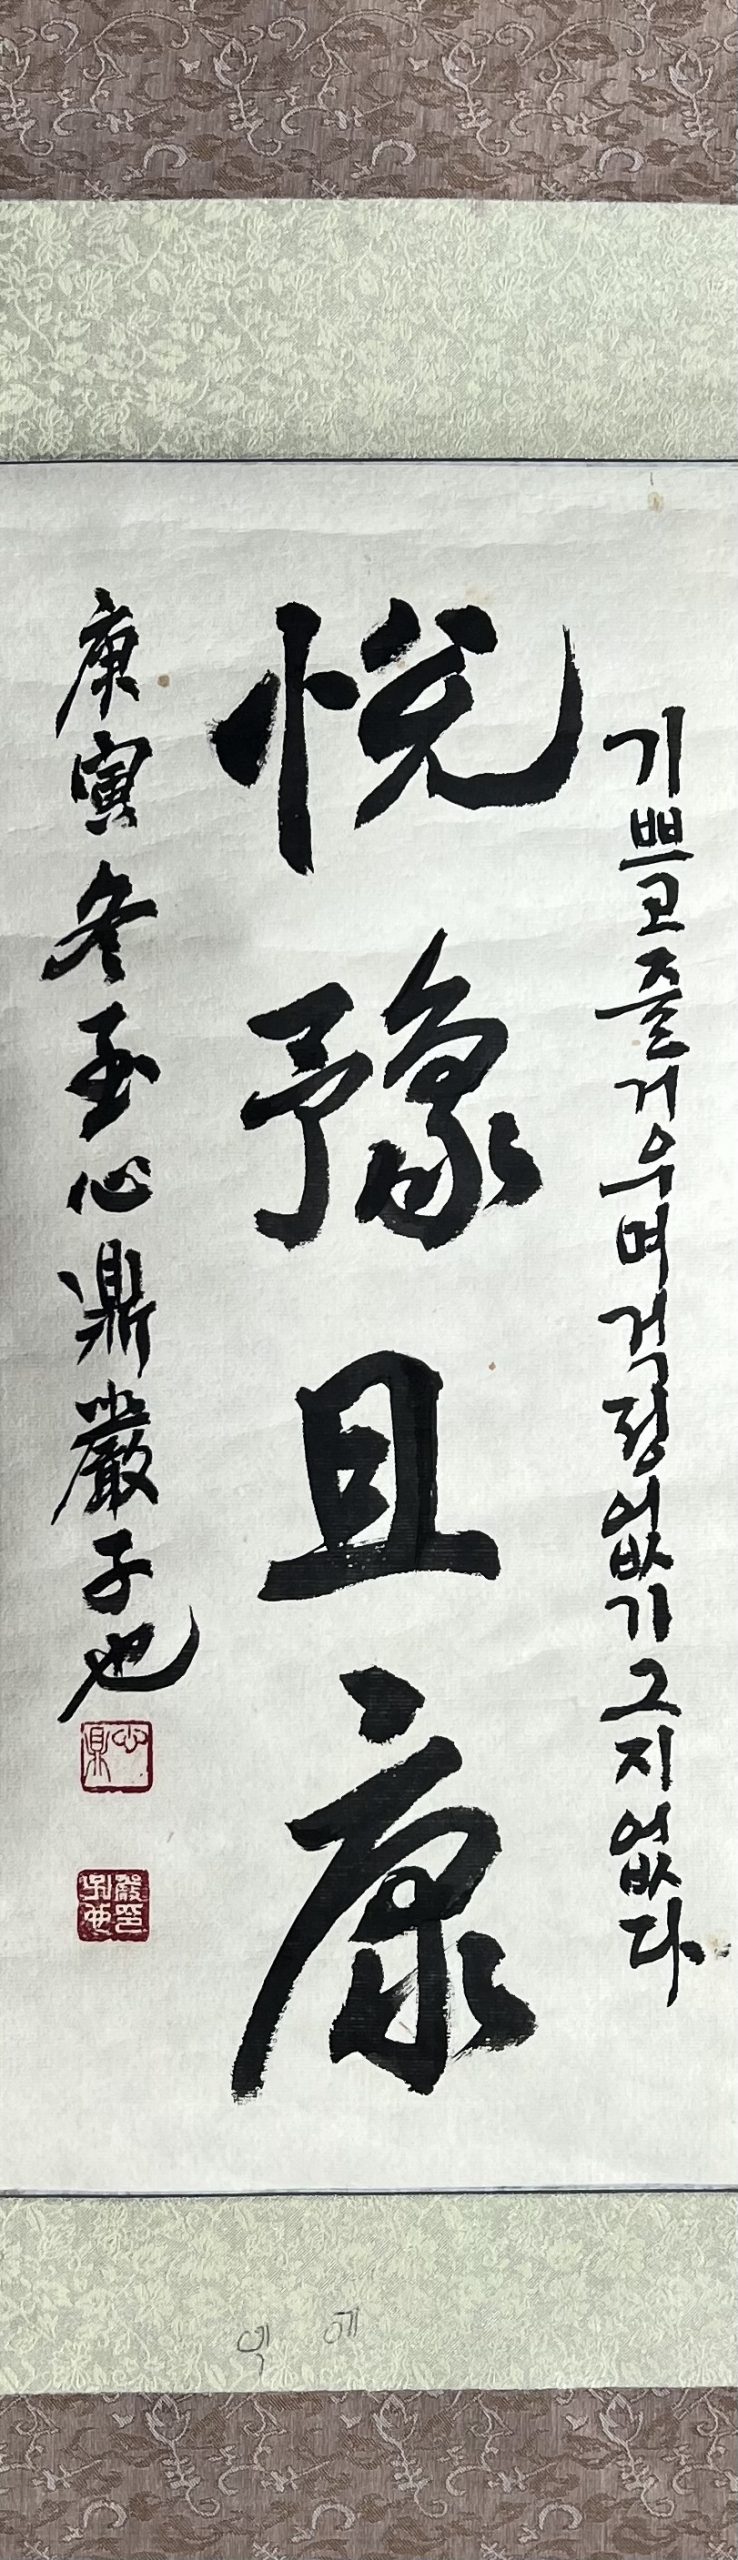 기쁘고 즐거우며 걱정 없기 그지 없다
悅豫且康
庚寅冬至心鼎嚴子也
心鼎